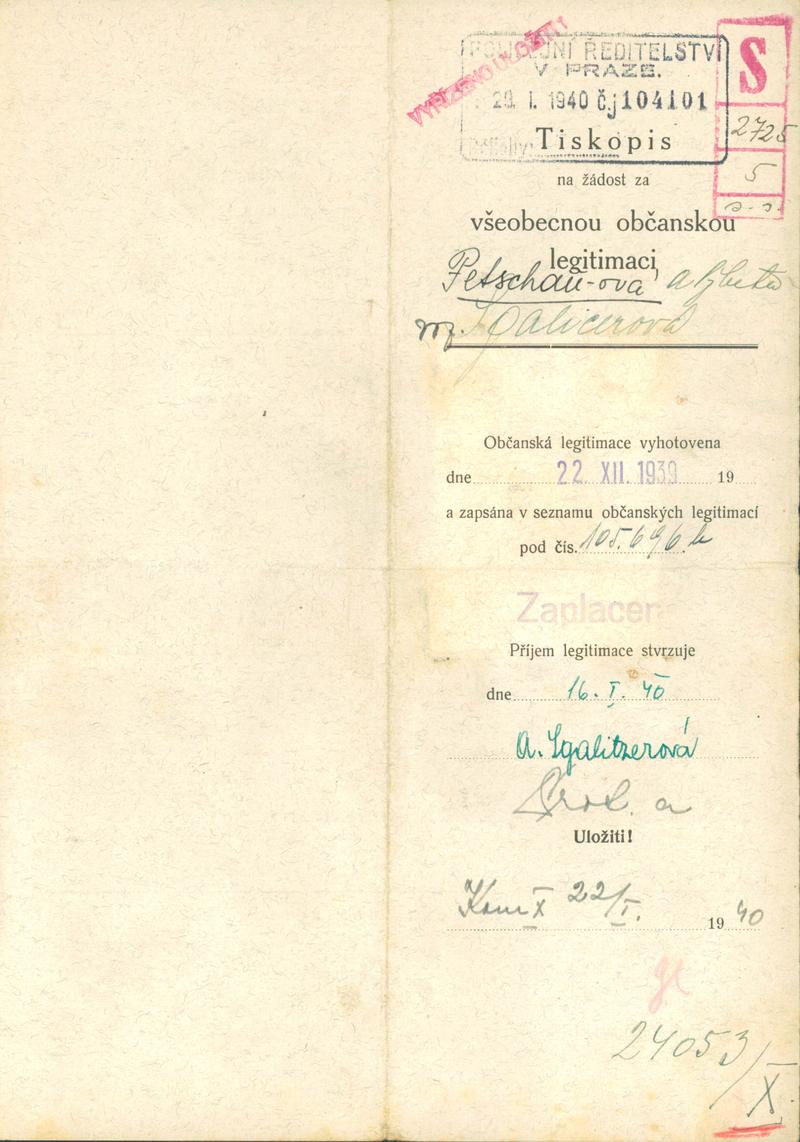 VYŘÍZENO ULOŽITI!
POLICEJNÍ ŘEDITELSTVÍ
V PRAZE.
S
I. 1940 čj 104101
2725
Tiskopis
5
na žádost za
všeobecnou občanskou
legitimaci
Petschau-ová Alžběta
Igalicerová
Občanská legitimace vyhotovena
dne 22. XII. 1939 19
a zapsána v seznamu občanských legitimací
pod čís. 105.696.b
Zaplacen
Příjem legitimace stvrzuje
dne 16. I. 40
A. Igalitzerová
Uložiti!
Kom X 22/I. 19 40
24053/X